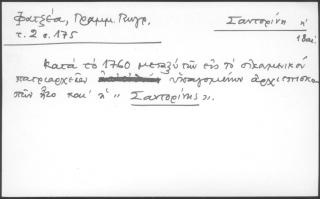 Φατζέα, Γραμμ. Γεωγρ.
τ. 2 σ. 175
Σαντορίνη
18
Κατά τό 1760 μεταξύ τῶν εἰς τό οἰκουμενικόν
πατριαρχεῖον ὑπαγομένων ἀρχιεπισκο
πῶν ἦτο καί ἡ " Σαντορίνης ".